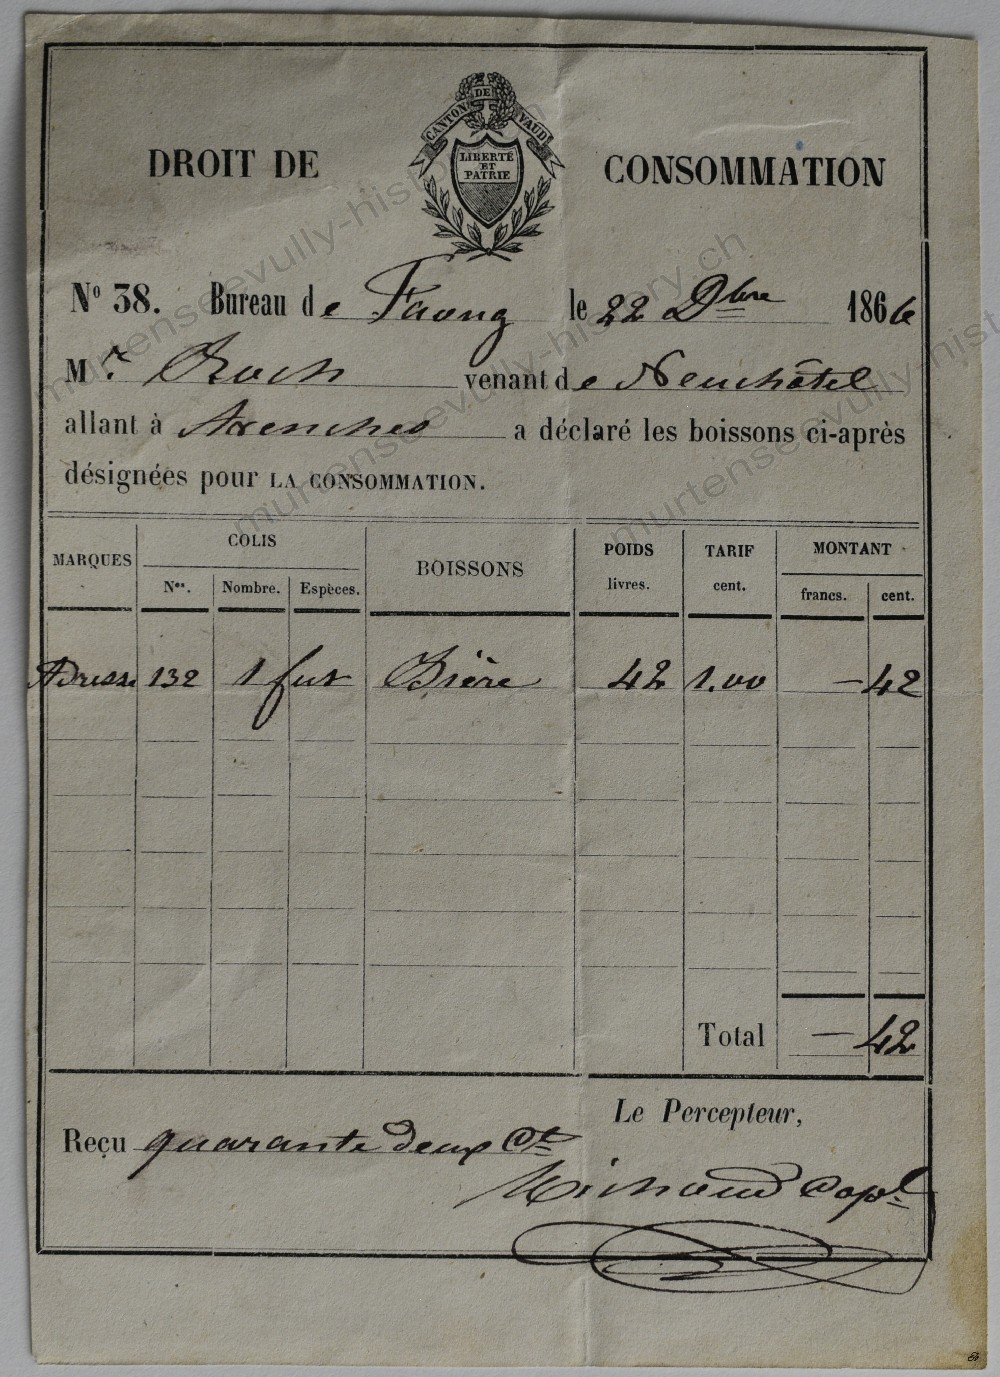 CANTON DE VAUD
LIBERTÉ
ET
PATRIE
DROIT DE CONSOMMATION
No 38. Bureau de Faoug le 22 Dbre 1866
Mr. Roch venant de Neuchâtel
allant à Avenches a déclaré les boissons ci-après
désignées pour LA CONSOMMATION.
MARQUES COLIS BOISSONS POIDS TARIF MONTANT
Nos. Nombre. Espèces. livres. cent. francs. cent.
Adresse 132 1 fut Bière 42 1.00 — 42
Total — 42
Le Percepteur,
Reçu quarante deux Ct
Michaud Capl
murtenseevully-history.ch
murtenseevully-history.ch